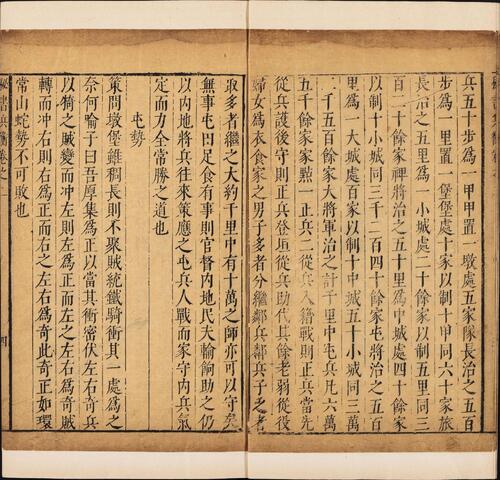 兵五十步爲一甲甲置一墩處五家隊長治之五百
步爲一里置一堡堡處十家以制十甲同六十家旅
長治之五里爲一小城處二十餘家以制五里同三
百二十餘家裨將治之五十里爲中城處四十餘家
以制十小城同三千二百四十餘家屯將治之五百
里爲一大城處百家以制十中城五十小城同三萬
二千五百餘家大將軍治之計千里中屯兵凡六萬
五千餘家家㸃一正兵二從兵入籍戰則正兵當先
從兵護後守則正兵登垣從兵助代其餘老弱從役
婦女爲衣食家之男子多者分繼鄰兵鄰兵子之者
取多者繼之大約千里中有十萬之師亦可以守矣
無事屯田足食有事則官督内地民夫輸餉助之仍
以内地將兵往來策應之屯兵人戰而家守内兵氣
定而力全常勝之道也
屯勢
策問墩堡雖稠長則不聚賊統鐵騎衝其一處爲之
奈何喻子曰吾原集爲正以當其衝密伏左右奇兵
以猗之賊變而冲左則左爲正而左之左右爲奇賊
轉而冲右則右爲正而右之左右爲奇此奇正如環
常山蛇勢不可敗也
四